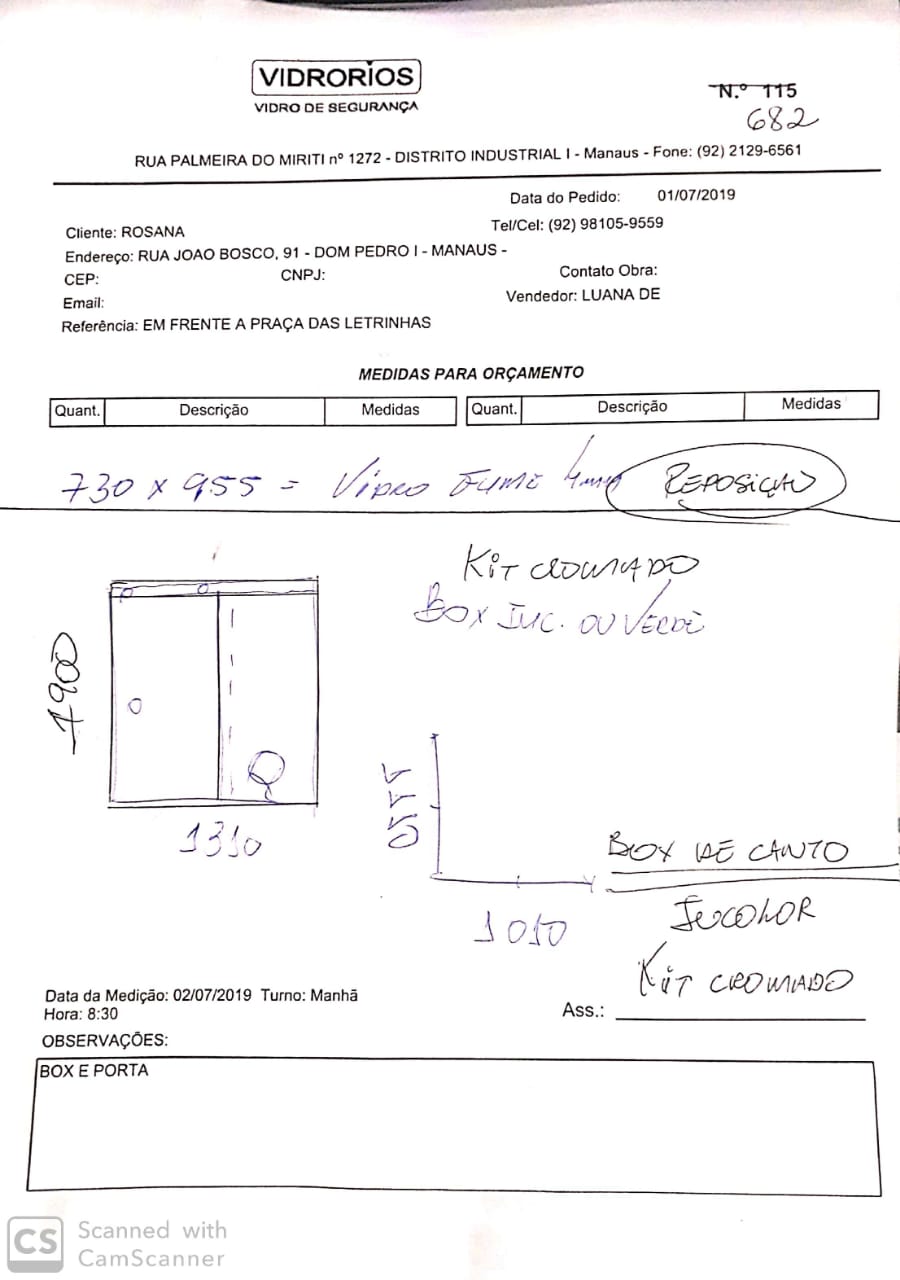 VIDRORIOS
VIDRO DE SEGURANÇA
N.º 115
682
RUA PALMEIRA DO MIRITI nº 1272 - DISTRITO INDUSTRIAL I - Manaus - Fone: (92) 2129-6561
Data do Pedido: 01/07/2019
Cliente: ROSANA
Tel/Cel: (92) 98105-9559
Endereço: RUA JOAO BOSCO, 91 - DOM PEDRO I - MANAUS -
CEP: CNPJ: Contato Obra:
Email: Vendedor: LUANA DE
Referência: EM FRENTE A PRAÇA DAS LETRINHAS
MEDIDAS PARA ORÇAMENTO
Quant. Descrição Medidas Quant. Descrição Medidas
730 x 955 = VIDRO FUME 4mm REPOSIÇAO
KIT CROMADO
BOX INC. OU VERDE
1900
1310
BOX DE CANTO
1010
INCOLOR
KIT CROMADO
Data da Medição: 02/07/2019 Turno: Manhã
Hora: 8:30
Ass.:
OBSERVAÇÕES:
BOX E PORTA
CS Scanned with
CamScanner